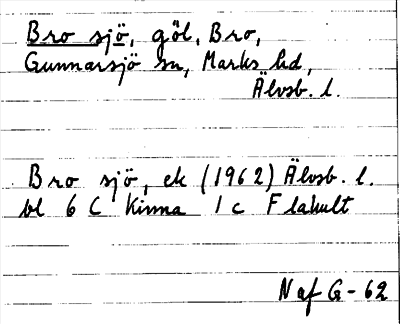 Bro sjö, göl, Bro,
Gunnarsjö sn, Marks hd,
Älvsb. l.
Bro sjö, ek (1962) Älvsb. l.
bl 6 C Kinna 1 c Flahult
N af G-62